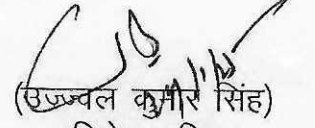 (उज्ज्वल कुमार सिंह)